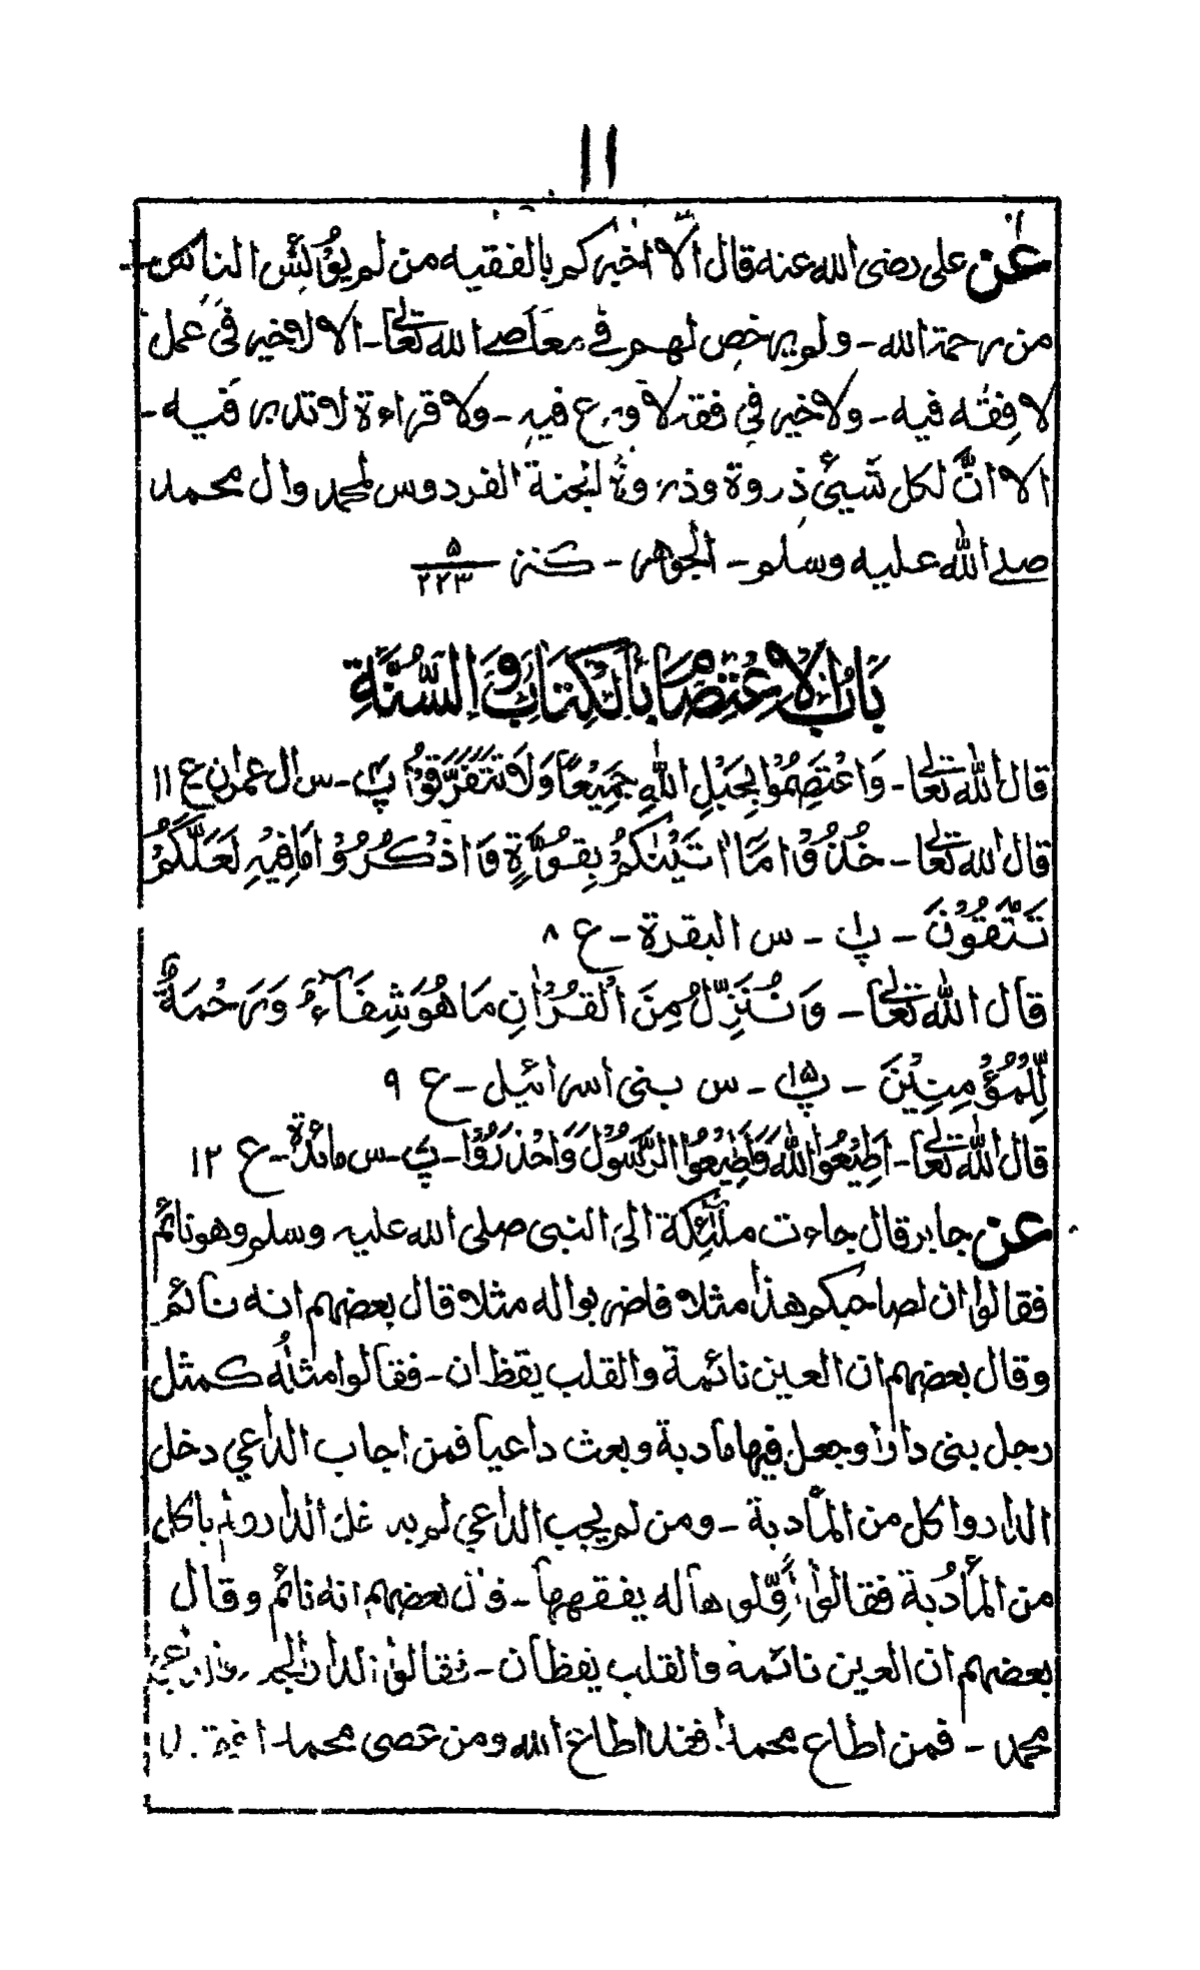 ١١
عن علی رضی الله عنه قال الا اخبركم بالفقيه من لم يؤئس الناس
من رحمة الله - ولم يرخص لهم فی معاصے الله تعالٰے - الا لا خير فی عمل
لا فقه فيه - ولا خير فی فقه لا ورع فيه - ولا قراءة لا تدبر فيه -
الا انّ لكل شيئ ذروة وذروة الجنة الفردوس لمحمد وال محمد
صلے الله عليه وسلم - الجوهر - كنز ٥/٢٢٣
بَابُ الْاِعْتِصَامِ بِالْكِتَابِ وَالسُّنَّةِ
قال الله تعالٰے - وَاعْتَصِمُوْا بِحَبْلِ اللّٰهِ جَمِيْعًا وَّلَا تَفَرَّقُوْا پ٤ - س ال عمران ع ١١
قال الله تعالٰے - خُذُوْا مَآ اٰتَيْنٰكُمْ بِقُوَّةٍ وَّاذْكُرُوْا مَا فِيْهِ لَعَلَّكُمْ
تَتَّقُوْنَ - پ١ - س البقرة - ع ٨
قال الله تعالٰے - وَنُنَزِّلُ مِنَ الْقُرْاٰنِ مَا هُوَ شِفَآءٌ وَّرَحْمَةٌ
لِّلْمُؤْمِنِيْنَ - پ١٥ - س بنی اسرائيل - ع ٩
قال الله تعالٰے - اَطِيْعُوا اللّٰهَ وَاَطِيْعُوا الرَّسُوْلَ وَاحْذَرُوْا - پ٧ - س مائدة - ع ١٢
عن جابر قال جاءت ملٰئكة الی النبی صلی الله عليه وسلم وهو نائم
فقالوا ان لصاحبكم هذا مثلا فاضربوا له مثلا قال بعضهم انه نائم
وقال بعضهم ان العين نائمة والقلب يقظان - فقالوا مثلُه كمثل
رجل بنی دارا وجعل فيها مادبة وبعث داعيا فمن اجاب الداعي دخل
الدار واكل من المأدبة - ومن لم يجب الداعي لم يدخل الدار ولم ياكل
من المأدُبة فقالوا اَوِّلوها له يفقهها - قال بعضهم انه نائم وقال
بعضهم ان العين نائمة والقلب يقظان - فقالوا الدار الجنة والداعی
محمد - فمن اطاع محمدا فقد اطاع الله ومن عصی محمدا